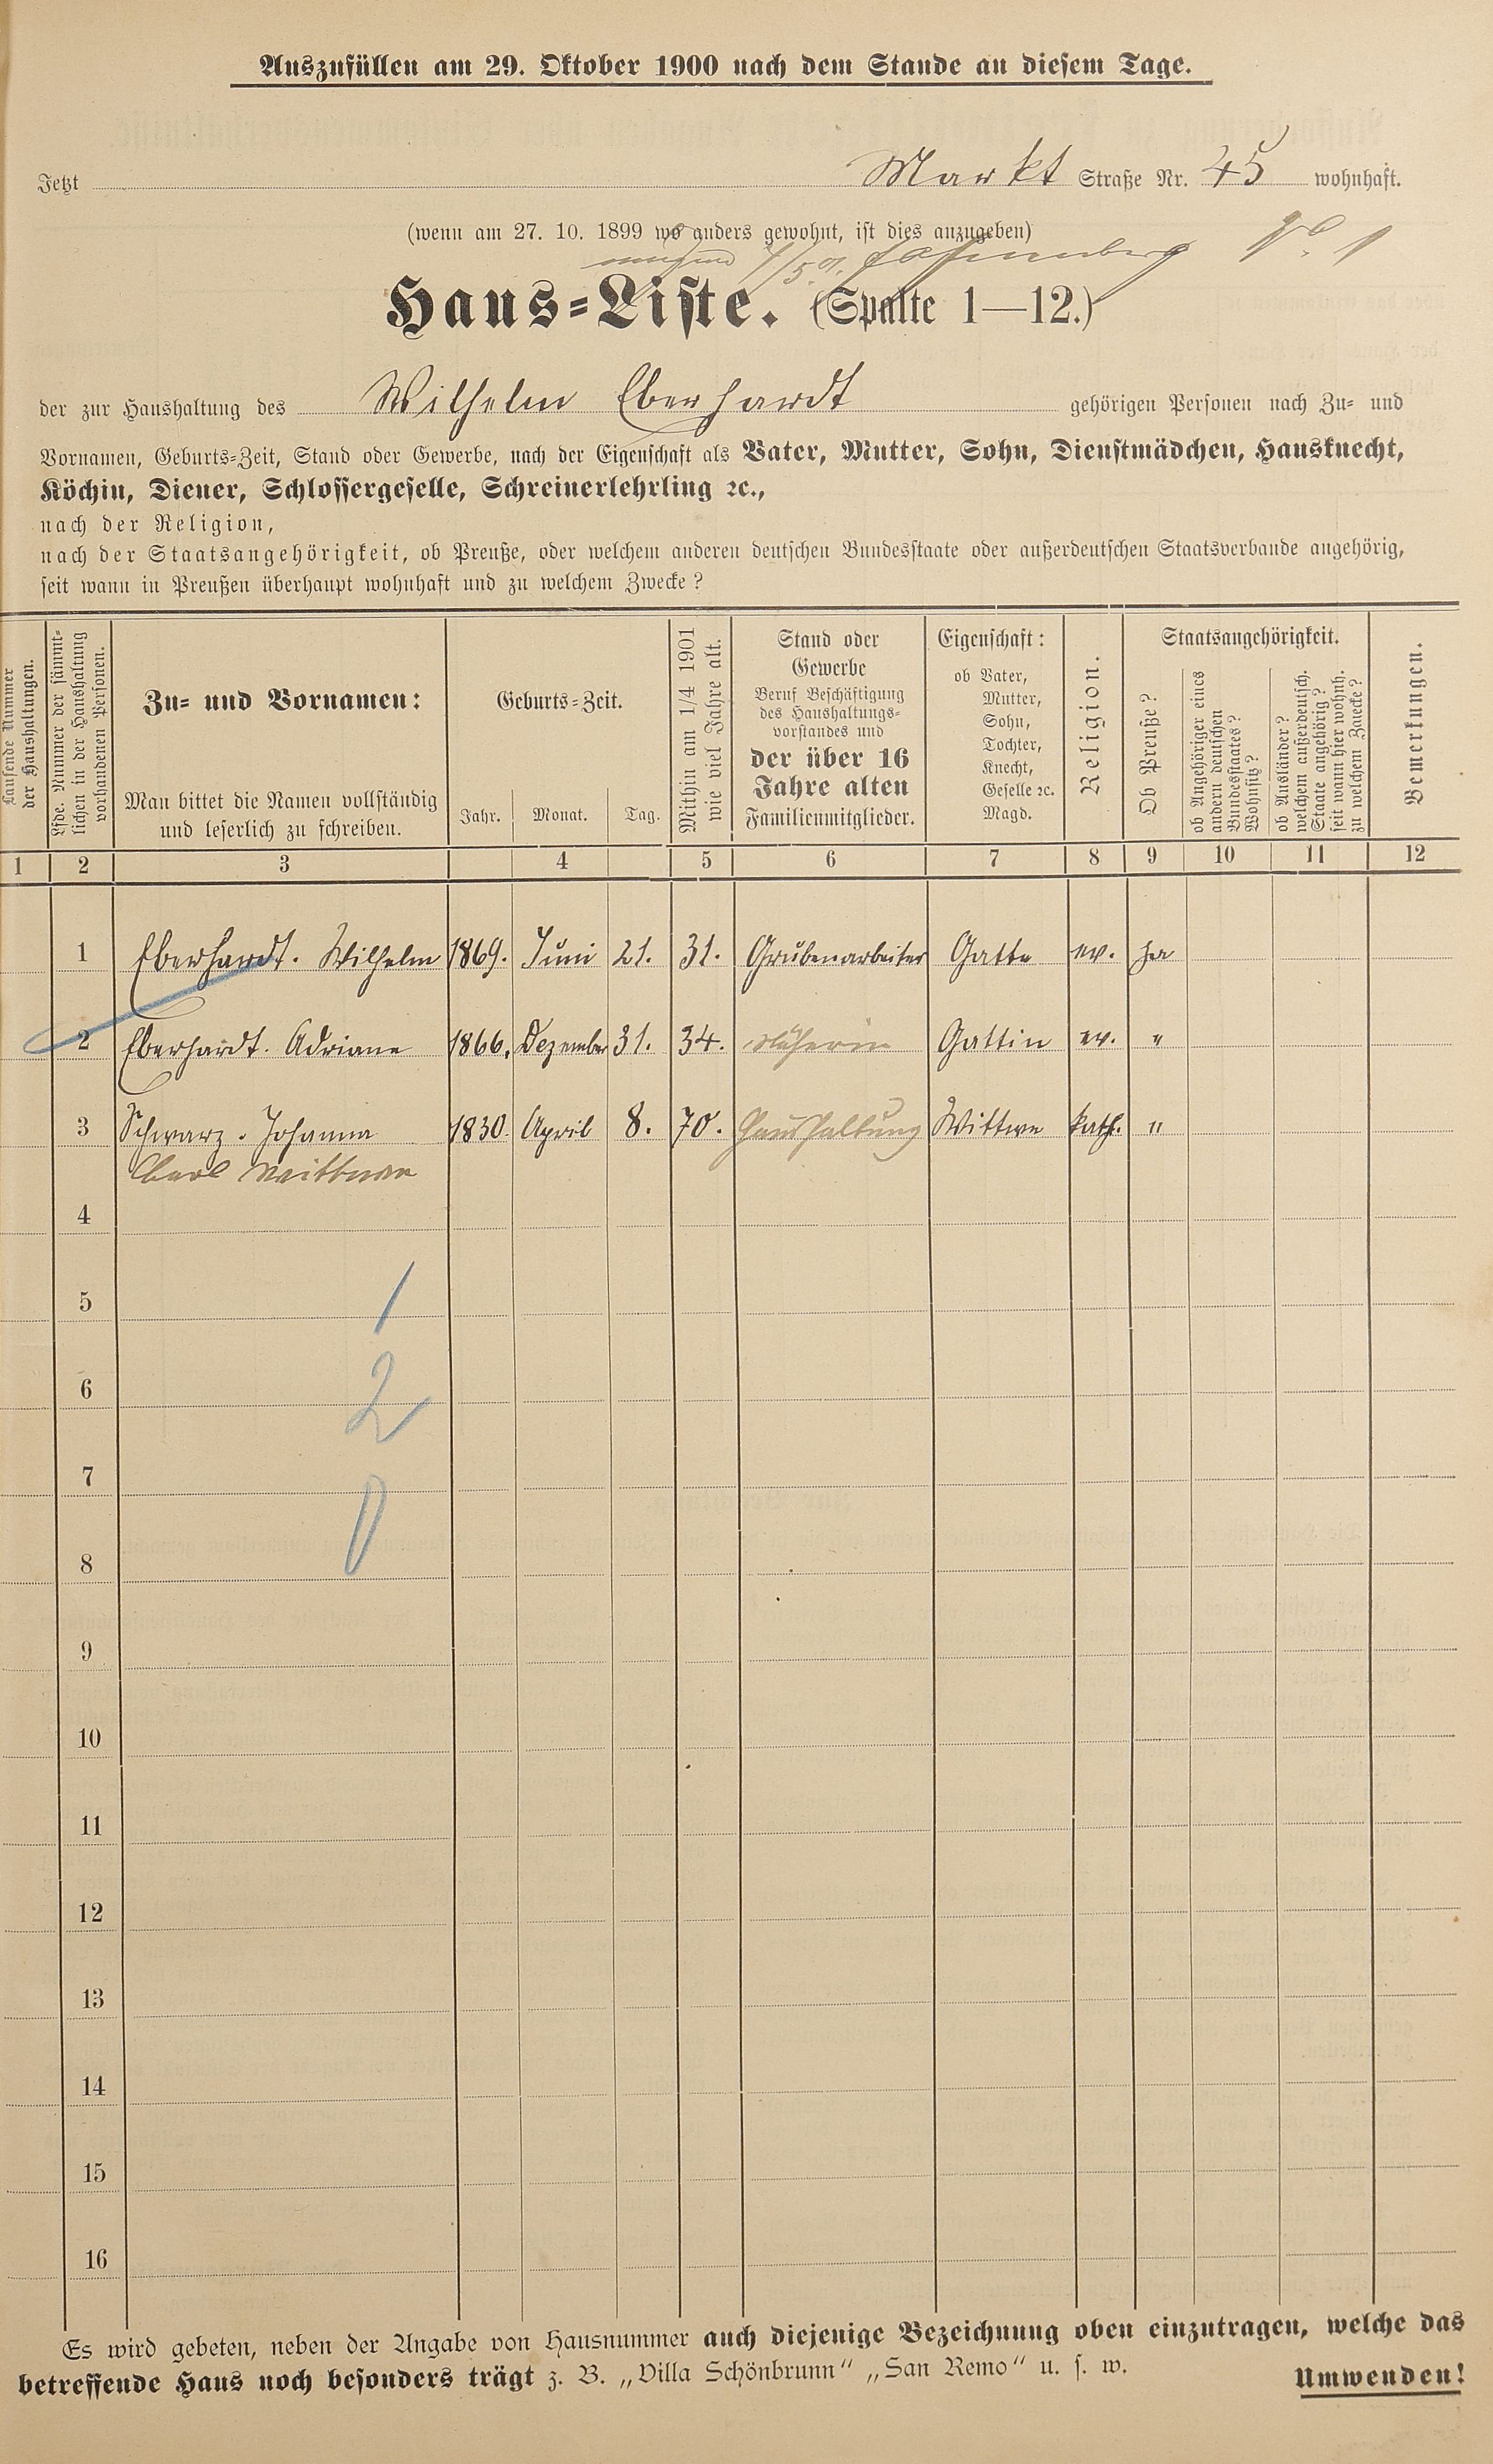 Auszufüllen am 29. Oktober 1900 nach dem Stande an diesem Tage.
Jetzt Markt Straße Nr. 45 wohnhaft.
(wenn am 27. 10. 1899 wo anders gewohnt, ist dies anzugeben)
Haus=Liste. (Spalte 1—12.)
der zur Haushaltung des Wilhelm Eberhardt gehörigen Personen nach Zu= und
Vornamen, Geburts=Zeit, Stand oder Gewerbe, nach der Eigenschaft als Vater, Mutter, Sohn, Dienstmädchen, Hausknecht,
Köchin, Diener, Schlossergeselle, Schreinerlehrling ꝛc.,
nach der Religion,
nach der Staatsangehörigkeit, ob Preuße, oder welchem anderen deutschen Bundesstaate oder außerdeutschen Staatsverbande angehörig,
seit wann in Preußen überhaupt wohnhaft und zu welchem Zwecke?
Laufende Nummer
der Haushaltungen.
Lfde. Nummer der sämmt-
lichen in der Haushaltung
vorhandenen Personen.
Zu= und Vornamen:
Man bittet die Namen vollständig
und leserlich zu schreiben.
Geburts=Zeit.
Jahr. Monat. Tag.
Mithin am 1/4 1901
wie viel Jahre alt.
Stand oder
Gewerbe
Beruf Beschäftigung
des Haushaltungs-
vorstandes und
der über 16
Jahre alten
Familienmitglieder.
Eigenschaft:
ob Vater,
Mutter,
Sohn,
Tochter,
Knecht,
Geselle ꝛc.
Magd.
Religion.
Staatsangehörigkeit.
Ob Preuße?
ob Angehöriger eines
andern deutschen
Bundesstaates?
Wohnsitz?
ob Ausländer?
welchem außerdeutsch.
Staate angehörig?
seit wann hier wohnh.
zu welchem Zwecke?
Bemerkungen.
1 2 3 4 5 6 7 8 9 10 11 12
1 Eberhardt. Wilhelm 1869. Juni 21. 31. Grubenarbeiter Gatte ev. ja
2 Eberhardt. Adriane 1866. Dezember 31. 34. Näherin Gattin ev. "
3 Schwarz. Johanna 1830. April 8. 70. Haushaltung Wittwe kath. "
Wittwe
4
5 1
6 2
7
8 0
9
10
11
12
13
14
15
16
Es wird gebeten, neben der Angabe von Hausnummer auch diejenige Bezeichnung oben einzutragen, welche das
betreffende Haus noch besonders trägt z. B. „Villa Schönbrunn" „San Remo" u. s. w.
Umwenden!